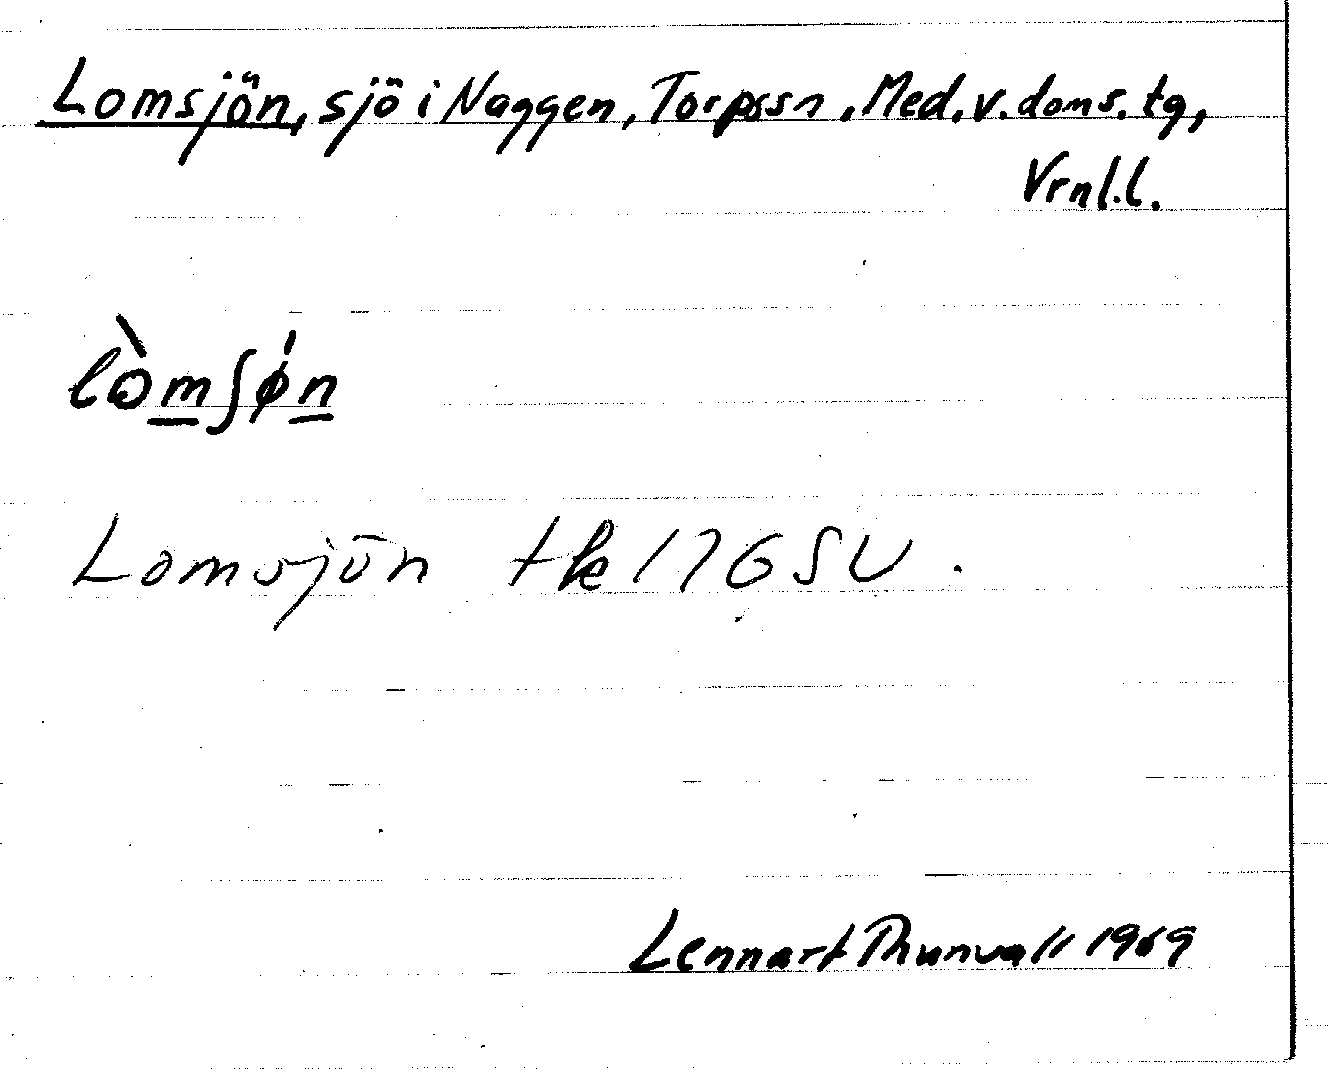 Lomsjön, sjö i Naggen, Torps sn, Med. v. doms. tg,
Vrnl.l.
lòmʃǿn
Lomsjön tk 17G SV.
Lennart Thunvall 1969